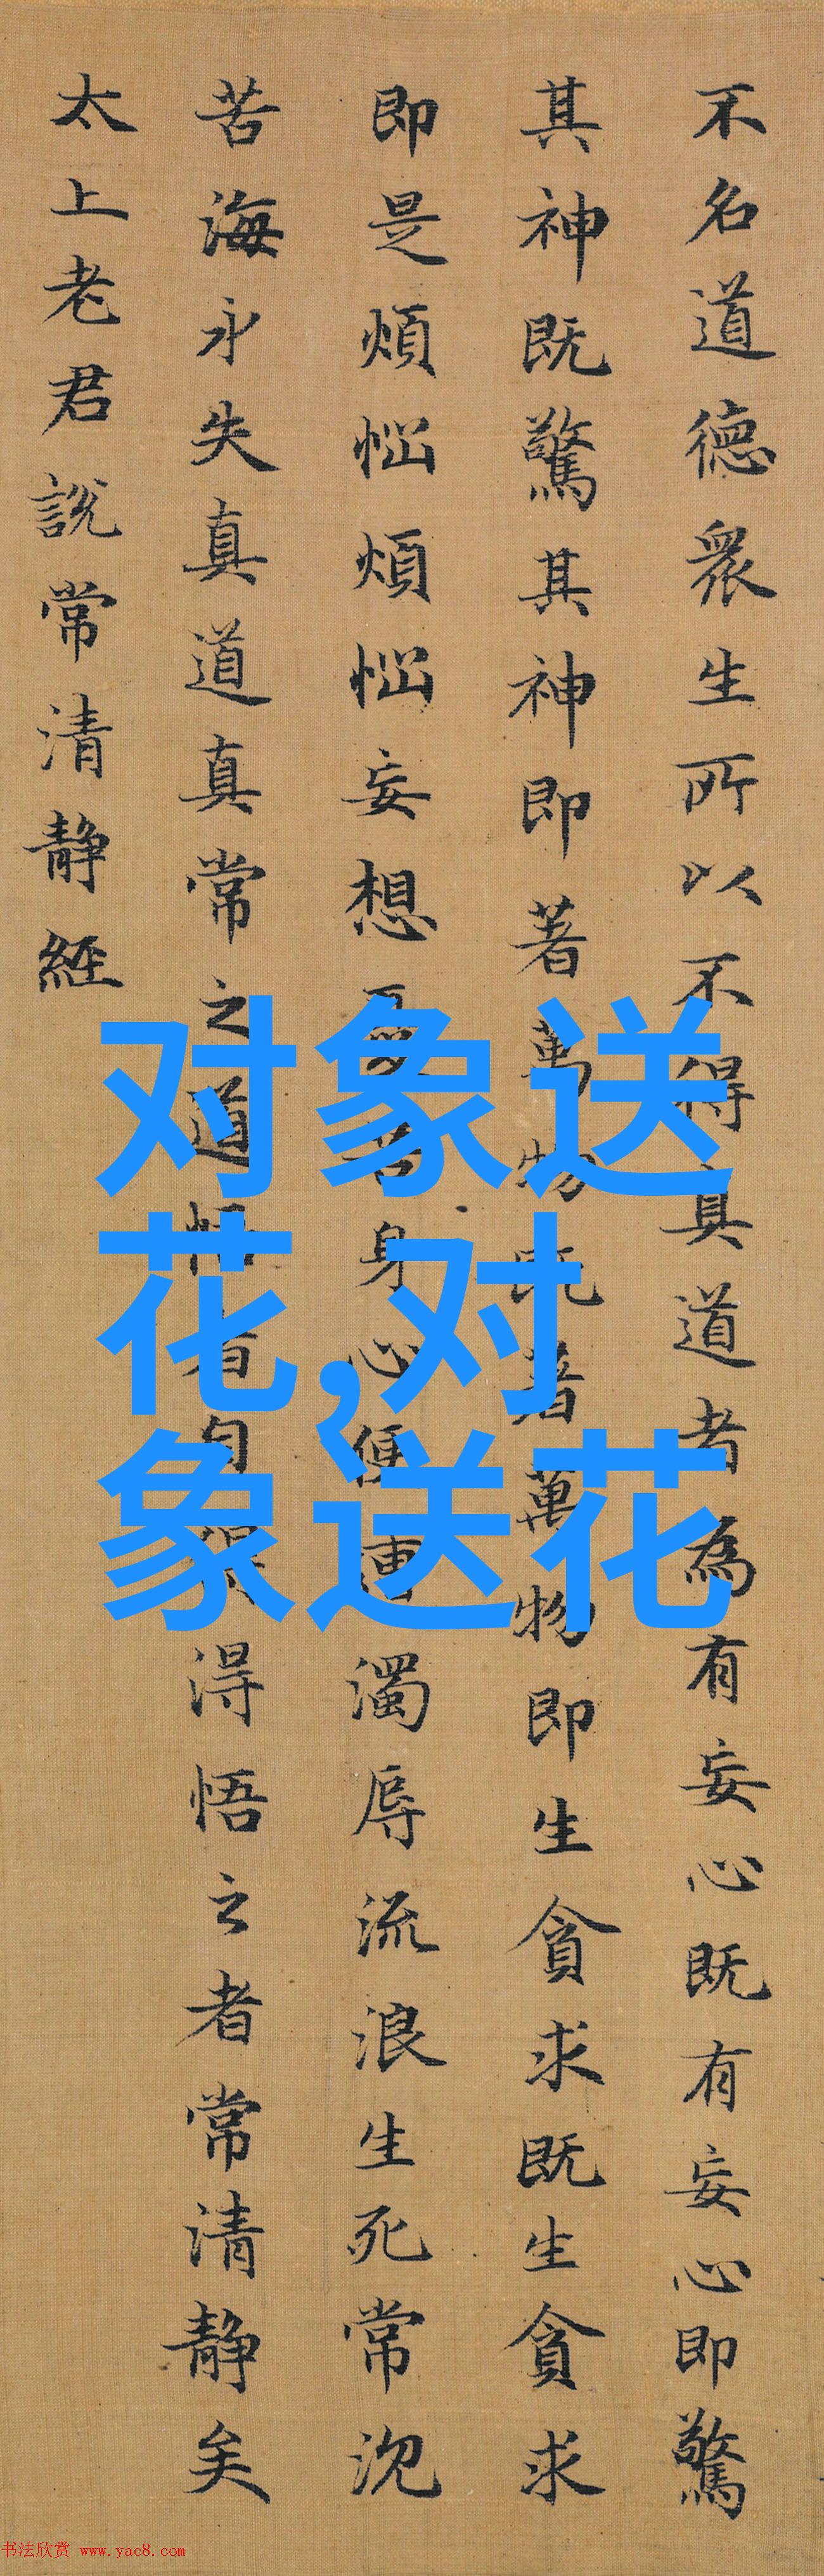 不名道德衆生所以不得真道者為有妄心既有妄心即驚
其神既驚其神即著萬物既著萬物即生貪求既生貪求
即是煩惱煩惱妄想憂苦身心便遭濁辱流浪生死常沉
苦海永失真道真常之道悟者自得得悟之者常清靜矣
太上老君說常清靜經
对象送
花,对
象送花
书法欣赏 www.yac8.com